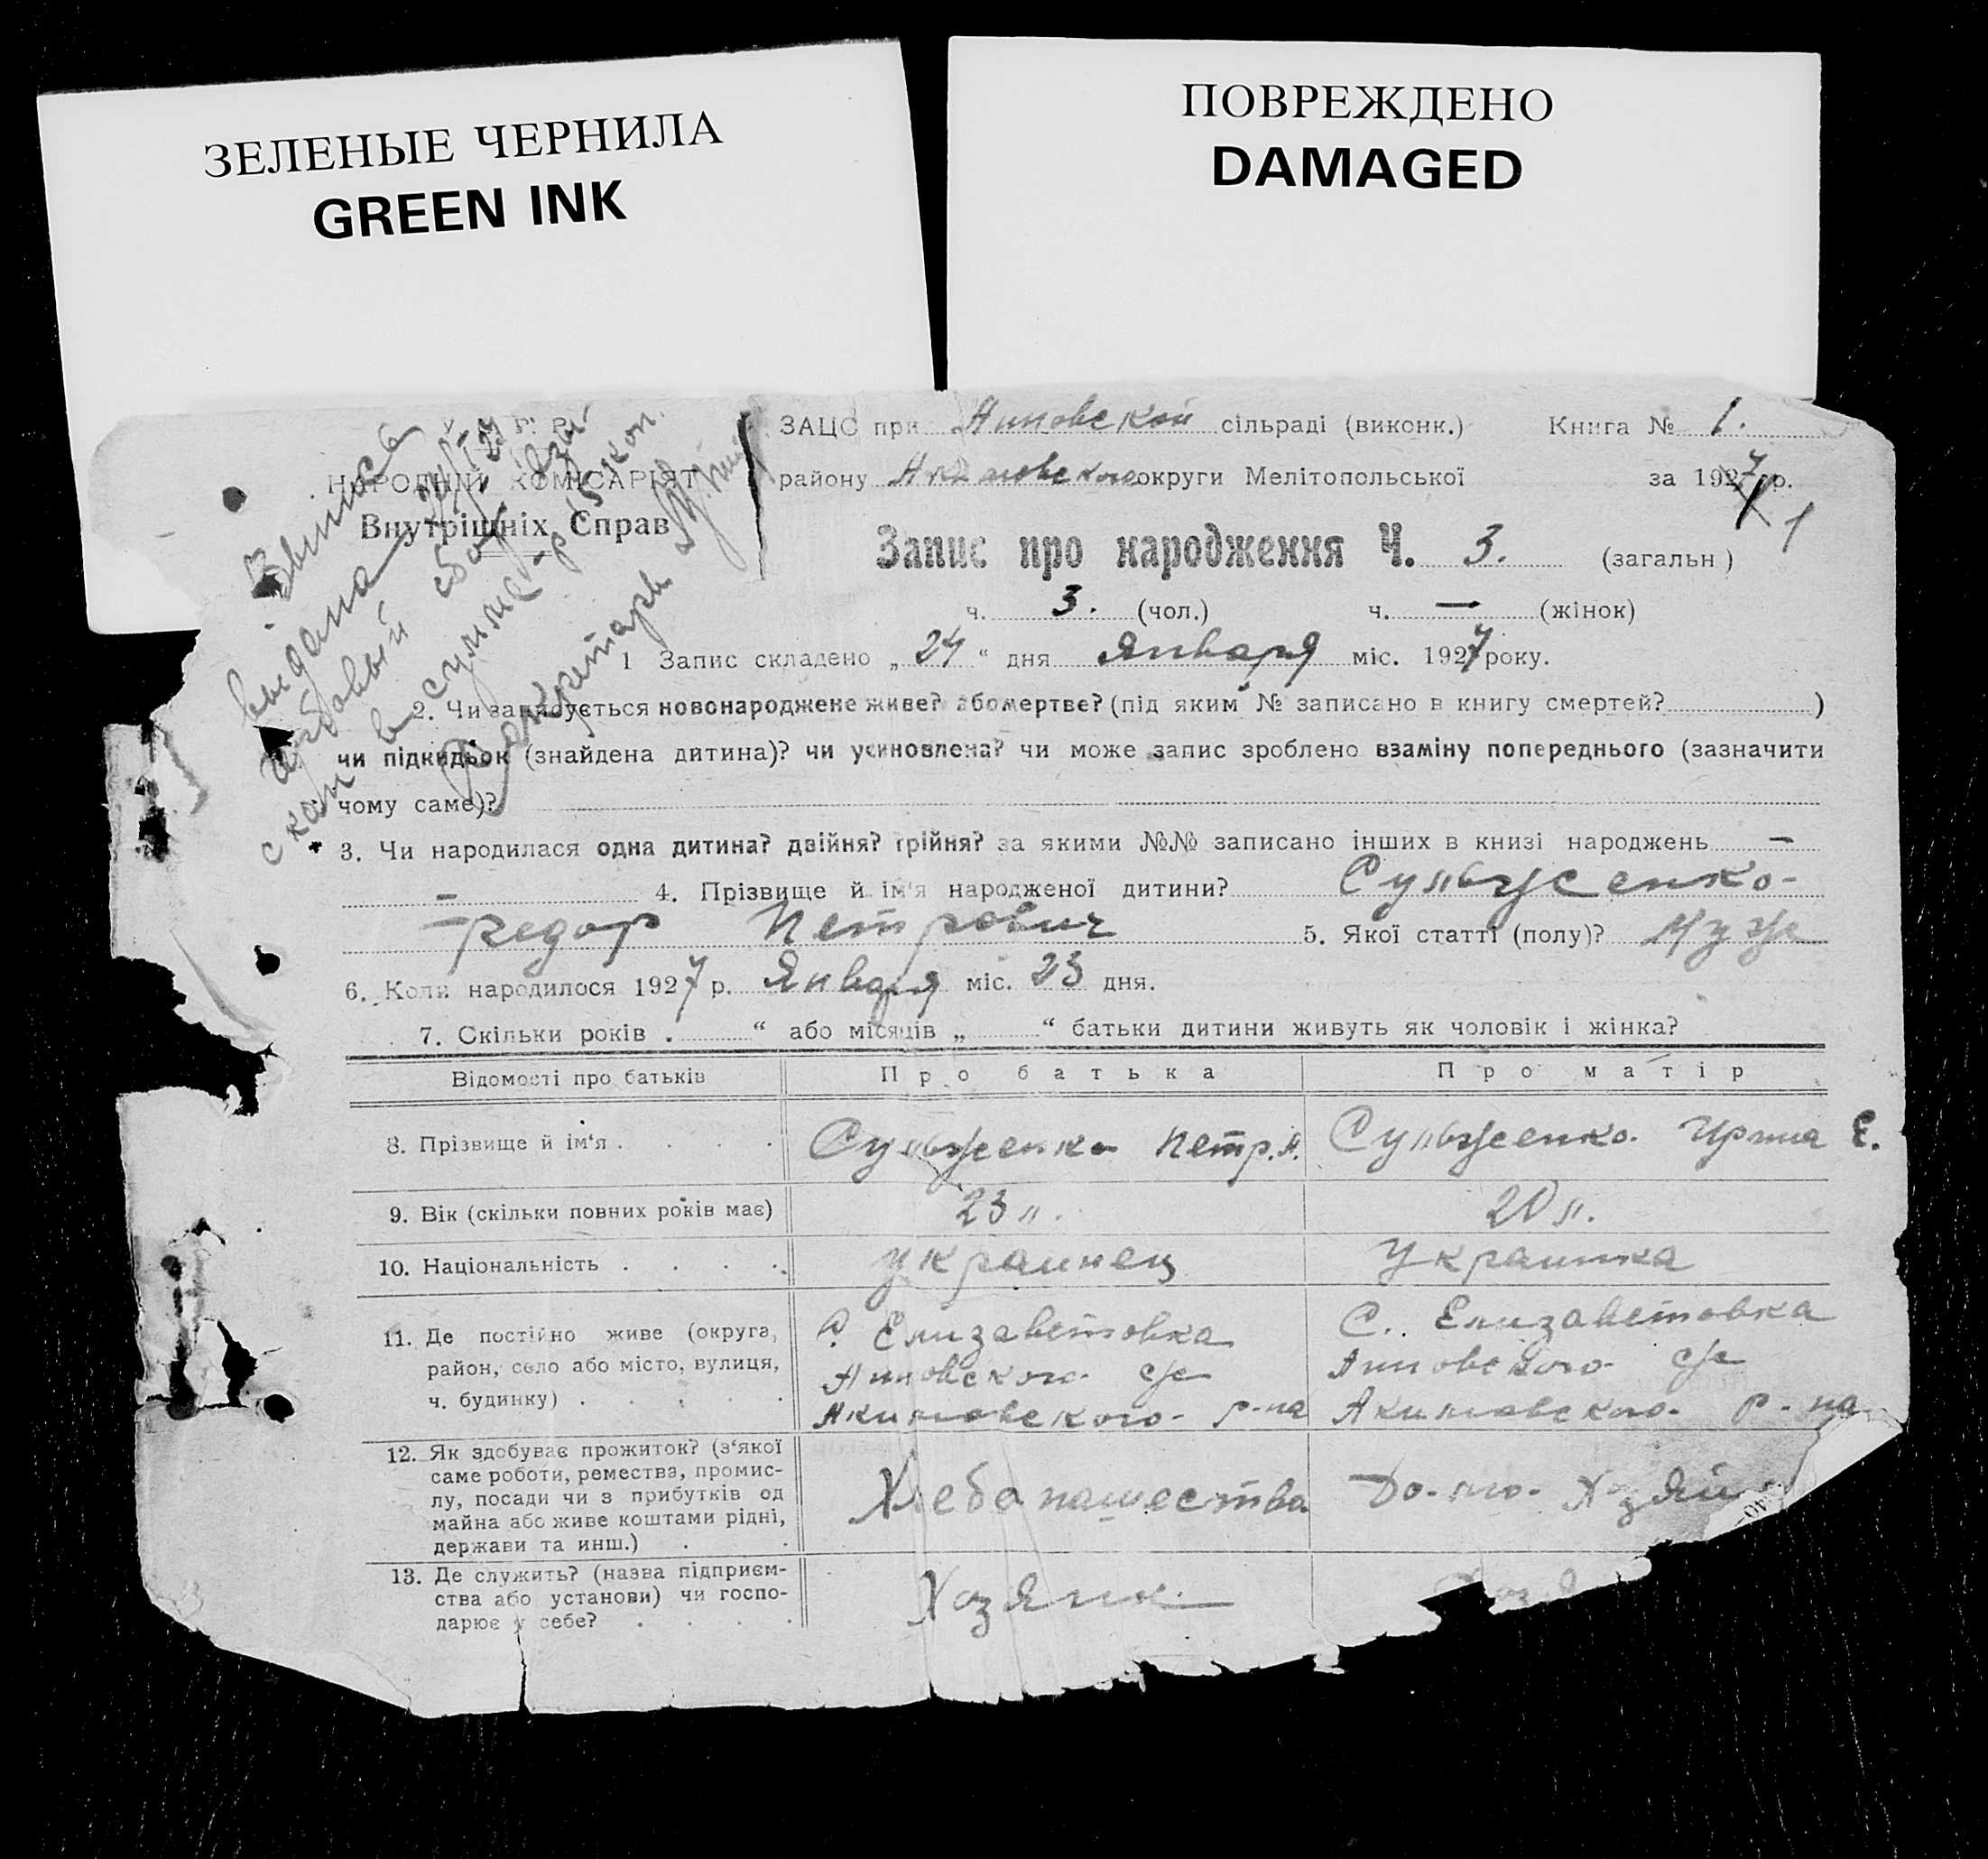 ЗЕЛЕНЫЕ ЧЕРНИЛА
GREEN INK
ПОВРЕЖДЕНО
DAMAGED
НАРОДНІЙ КОМІСАРІЯТ
Внутрішніх Справ
Выписка
выдана
гербовый сбор взыскан
в сумме 1 р. 15 коп.
Секретарь
ЗАЦС при Анновской сільраді (виконк.) Книга № 1.
району Акимовского округи Мелітопольської за 1927 р.
1
Запис про народження Ч. 3. (загальн)
ч. 3. (чол.) ч. — (жінок)
1 Запис складено „24“ дня Января міс. 1927 року.
2. Чи записується новонароджене живе? або мертве? (під яким № записано в книгу смертей? )
чи підкидьок (знайдена дитина)? чи усиновлена? чи може запис зроблено взаміну попереднього (зазначити
чому саме)?
3. Чи народилася одна дитина? двійня? трійня? за якими №№ записано інших в книзі народжень —
— 4. Прізвище й ім'я народженої дитини? Сульженко
Федор Петрович 5. Якої статті (полу)? Муж
6. Коли народилося 1927 р. Января міс. 23 дня.
7. Скільки років . “ або місяців „ “ батьки дитини живуть як чоловік і жінка?
Відомості про батьків Про батька Про матір
8. Прізвище й ім'я . . . . Сульженко Петр. Сульженко Ирина Е.
9. Вік (скільки повних років має) 23 л. 20 л.
10. Національність . . . . украинец Украинка
11. Де постійно живе (округа,
район, село або місто, вулиця,
ч. будинку) . . . .
С. Елизаветовка
Анновского с/с
Акимовского р-на
С. Елизаветовка
Анновского с/с
Акимовского р-на
12. Як здобуває прожиток? (з'якої
саме роботи, ремества, промис-
лу, посади чи з прибутків од
майна або живе коштами рідні,
держави та инш.) . .
Хлебопашества
13. Де служить? (назва підприєм-
ства або установи) чи госпо-
дарює у себе? . . . .
Хозяин